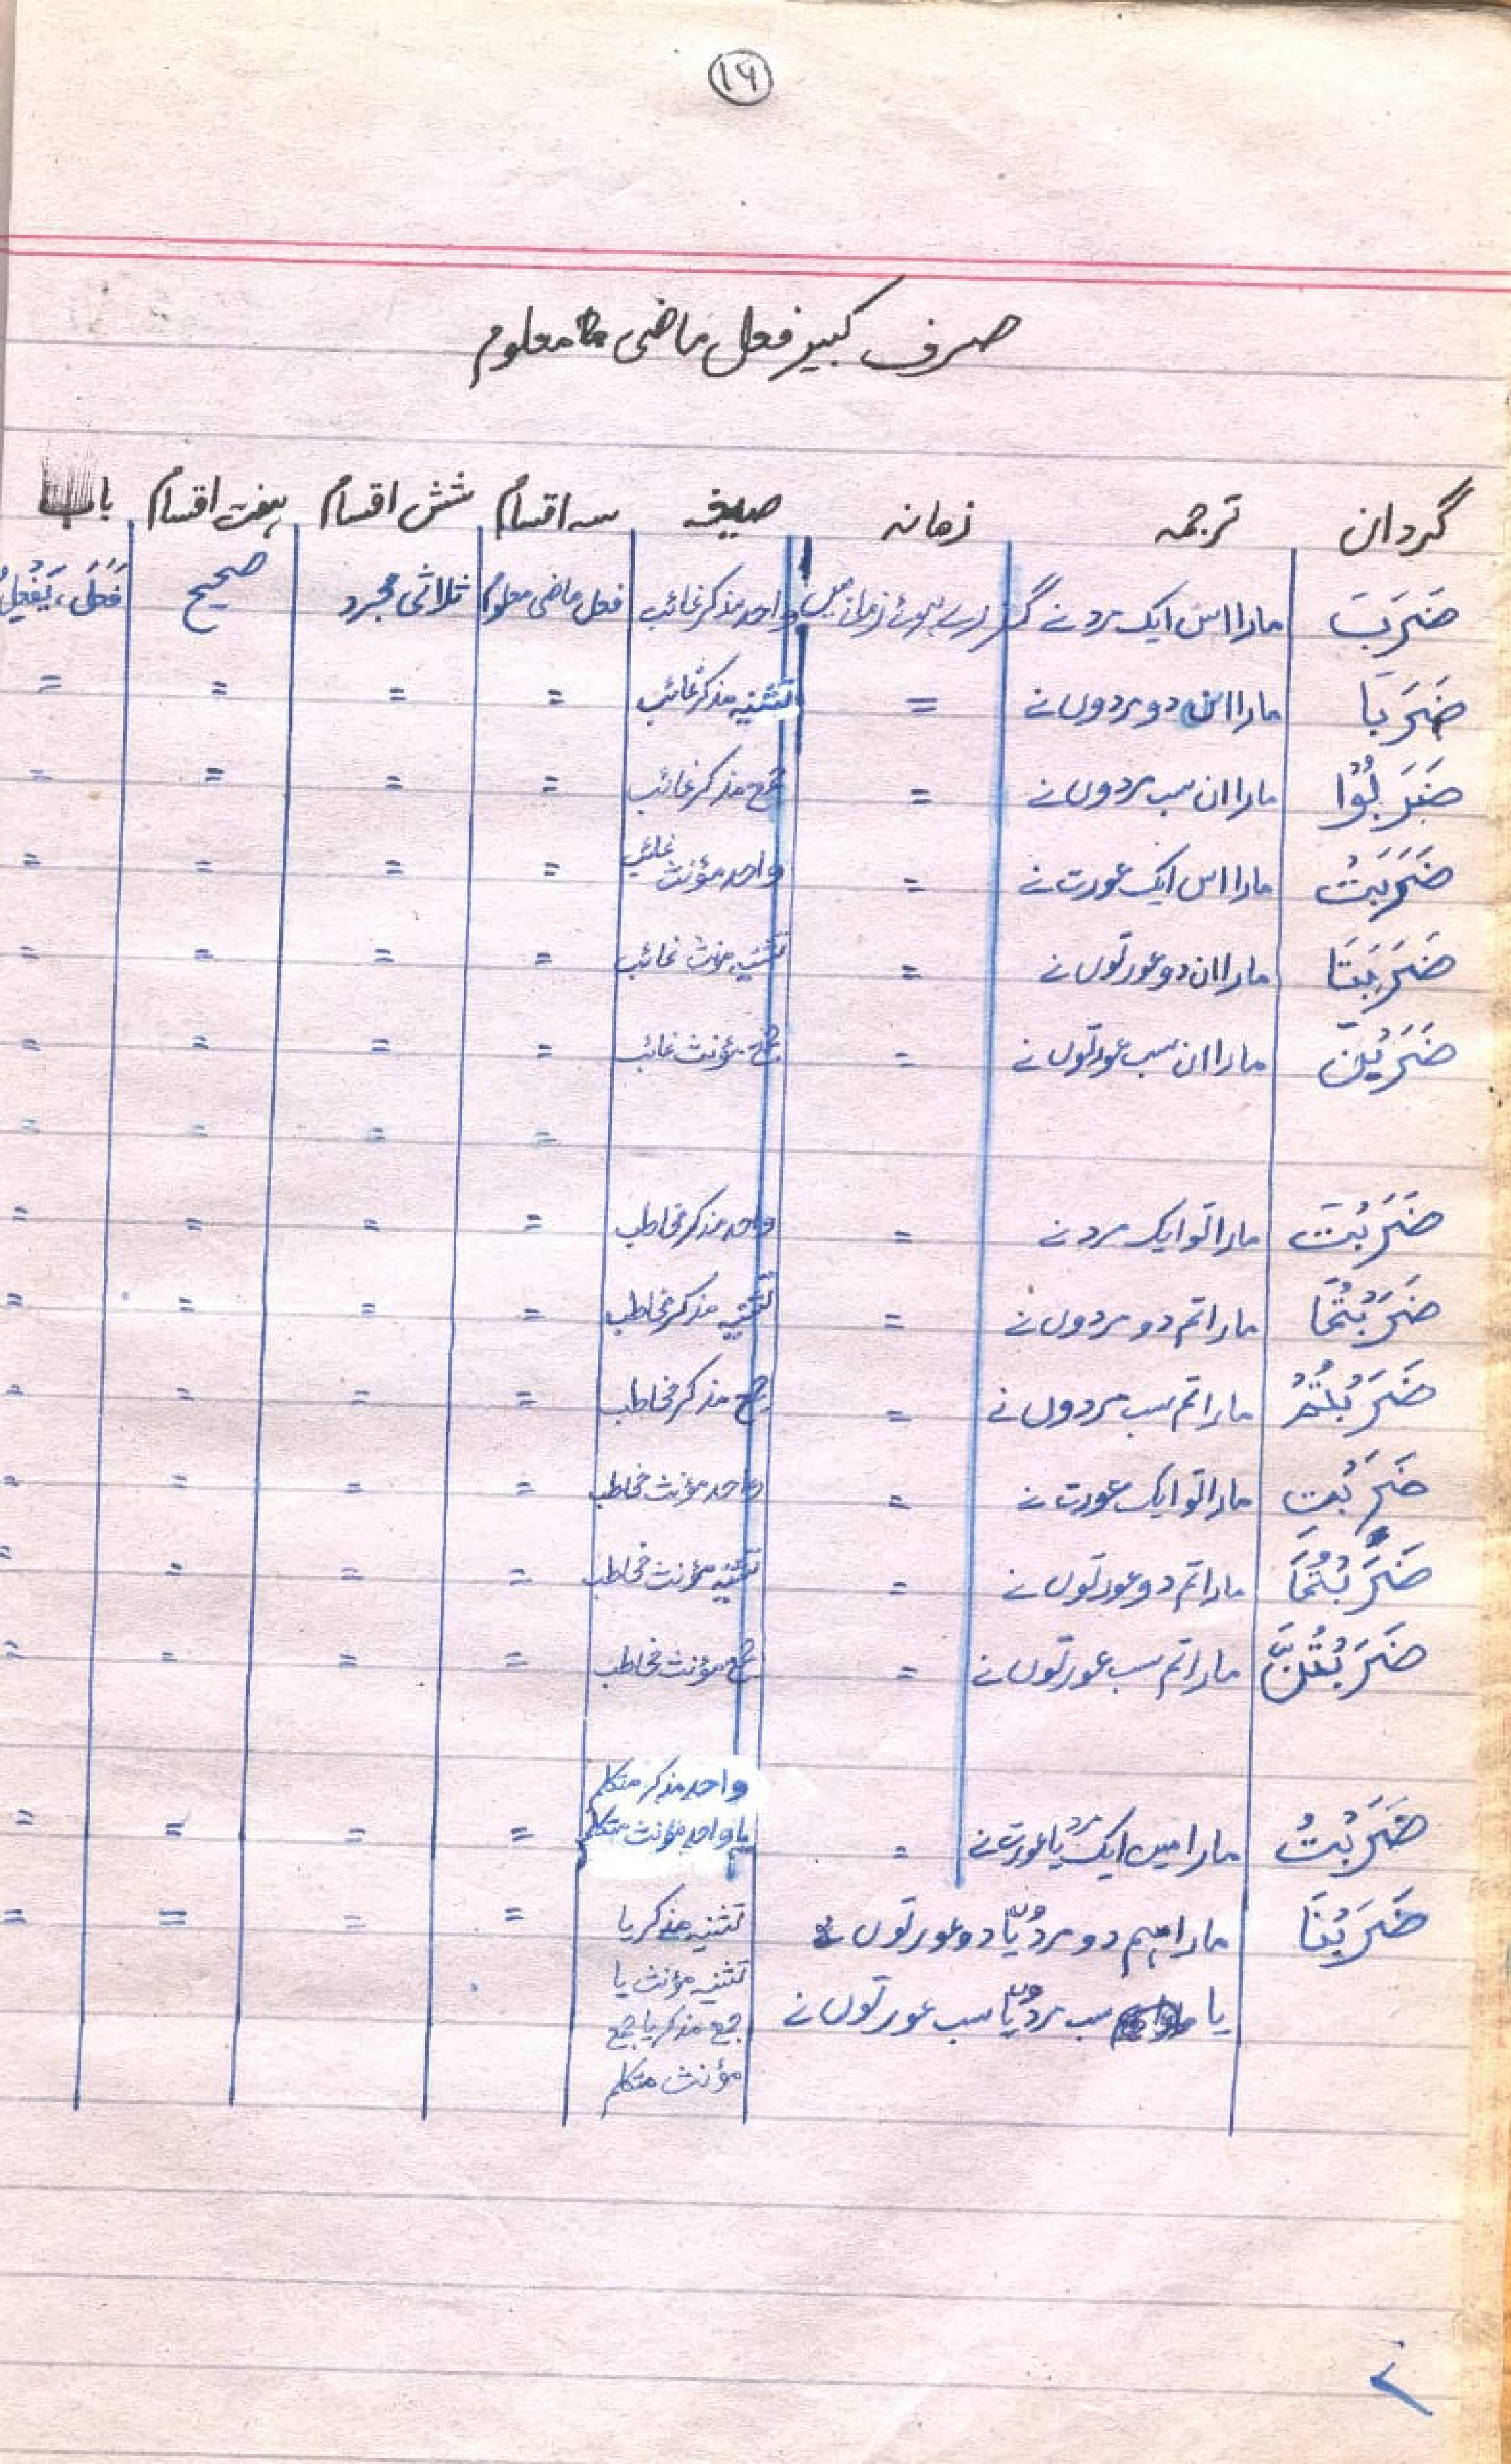 ۱۶
صرف کبیر فعل ماضی معلوم
گردان ترجمہ زمانہ صیغہ سہ اقسام شش اقسام ہفت اقسام باب
ضَرَبَ مارا اس ایک مرد نے گزرے ہوئے زمانے میں واحد مذکر غائب فعل ماضی معلوم ثلاثی مجرد صحیح فَعَلَ، یَفْعِلُ
ضَرَبَا مارا ان دو مردوں نے = تثنیہ مذکر غائب = = = =
ضَرَبُوْا مارا ان سب مردوں نے = جمع مذکر غائب = = = =
ضَرَبَتْ مارا اس ایک عورت نے = واحد مؤنث غائب = = = =
ضَرَبَتَا مارا ان دو عورتوں نے = تثنیہ مؤنث غائب = = = =
ضَرَبْنَ مارا ان سب عورتوں نے = جمع مؤنث غائب = = = =
= = = =
ضَرَبْتَ مارا تو ایک مرد نے = واحد مذکر مخاطب = = = =
ضَرَبْتُمَا مارا تم دو مردوں نے = تثنیہ مذکر مخاطب = = = =
ضَرَبْتُمْ مارا تم سب مردوں نے = جمع مذکر مخاطب = = = =
ضَرَبْتِ مارا تو ایک عورت نے = واحد مؤنث مخاطب = = = =
ضَرَبْتُمَا مارا تم دو عورتوں نے = تثنیہ مؤنث مخاطب = = = =
ضَرَبْتُنَّ مارا تم سب عورتوں نے = جمع مؤنث مخاطب = = = =
واحد مذکر متکلم
ضَرَبْتُ مارا میں ایک مرد یا عورت نے = یا واحد مؤنث متکلم = = = =
ضَرَبْنَا مارا ہم دو مردوں یا دو عورتوں نے تثنیہ مذکر یا = = = =
تثنیہ مؤنث یا
یا سب مردوں یا سب عورتوں نے جمع مذکر یا جمع
مؤنث متکلم